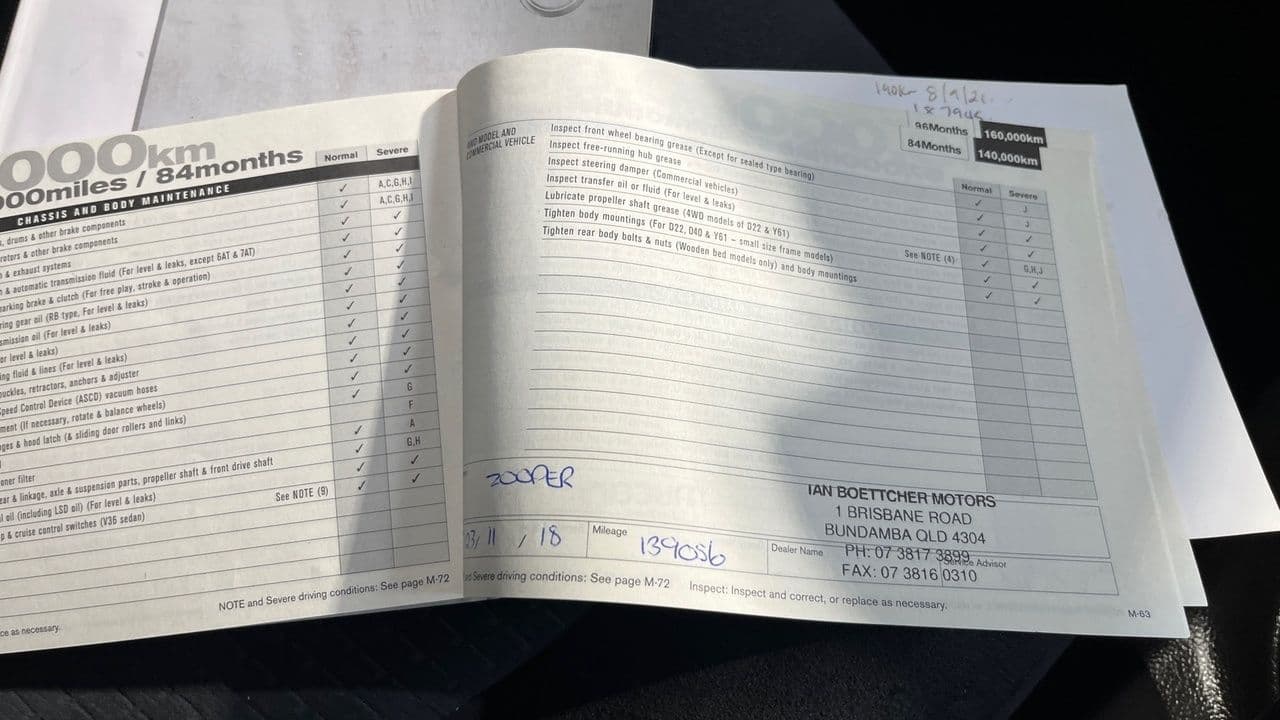 000km
000miles / 84months
Normal
Severe
CHASSIS AND BODY MAINTENANCE
, drums & other brake components
✓
A,C,G,H,I
rotors & other brake components
✓
A,C,G,H,I
& exhaust systems
✓
✓
& automatic transmission fluid (For level & leaks, except 6AT & 7AT)
✓
✓
arking brake & clutch (For free play, stroke & operation)
✓
✓
ring gear oil (RB type, For level & leaks)
✓
✓
smission oil (For level & leaks)
✓
✓
or level & leaks)
✓
✓
ing fluid & lines (For level & leaks)
✓
✓
buckles, retractors, anchors & adjuster
✓
✓
Speed Control Device (ASCD) vacuum hoses
✓
✓
ment (If necessary, rotate & balance wheels)
✓
✓
ges & hood latch (& sliding door rollers and links)
G
F
oner filter
A
ear & linkage, axle & suspension parts, propeller shaft & front drive shaft
✓
G,H
l oil (including LSD oil) (For level & leaks)
See NOTE (9)
✓
✓
p & cruise control switches (V36 sedan)
✓
✓
NOTE and Severe driving conditions: See page M-72
ce as necessary.
8/9/21
96Months
160,000km
84Months
140,000km
4WD MODEL AND
COMMERCIAL VEHICLE
Normal
Severe
Inspect front wheel bearing grease (Except for sealed type bearing)
✓
J
Inspect free-running hub grease
✓
J
Inspect steering damper (Commercial vehicles)
✓
✓
Inspect transfer oil or fluid (For level & leaks)
✓
✓
Lubricate propeller shaft grease (4WD models of D22 & Y61)
✓
G,H,J
Tighten body mountings (For D22, D40 & Y61 – small size frame models)
See NOTE (4)
✓
✓
Tighten rear body bolts & nuts (Wooden bed models only) and body mountings
✓
✓
IAN BOETTCHER MOTORS
1 BRISBANE ROAD
BUNDAMBA QLD 4304
PH: 07 3817 3899
FAX: 07 3816 0310
23/11/18
Mileage
139056
Dealer Name
Service Advisor
nd Severe driving conditions: See page M-72
Inspect: Inspect and correct, or replace as necessary.
M-63